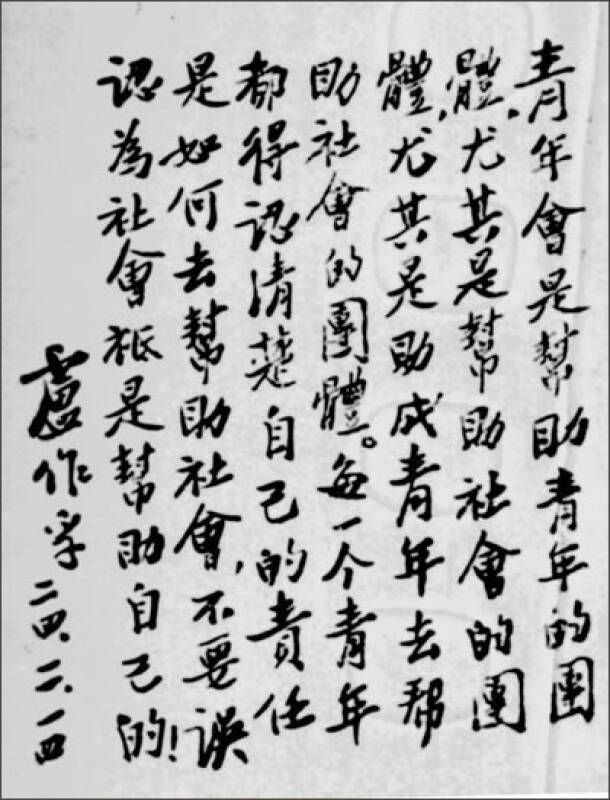 青年會是幫助青年的團
體,尤其是幫助社會的團
體,尤其是助成青年去幫
助社會的團體。每一个青年
都得認清楚自己的責任
是如何去幫助社會,不要誤
認為社會祇是幫助自己的!
盧作孚 二四、二、一四